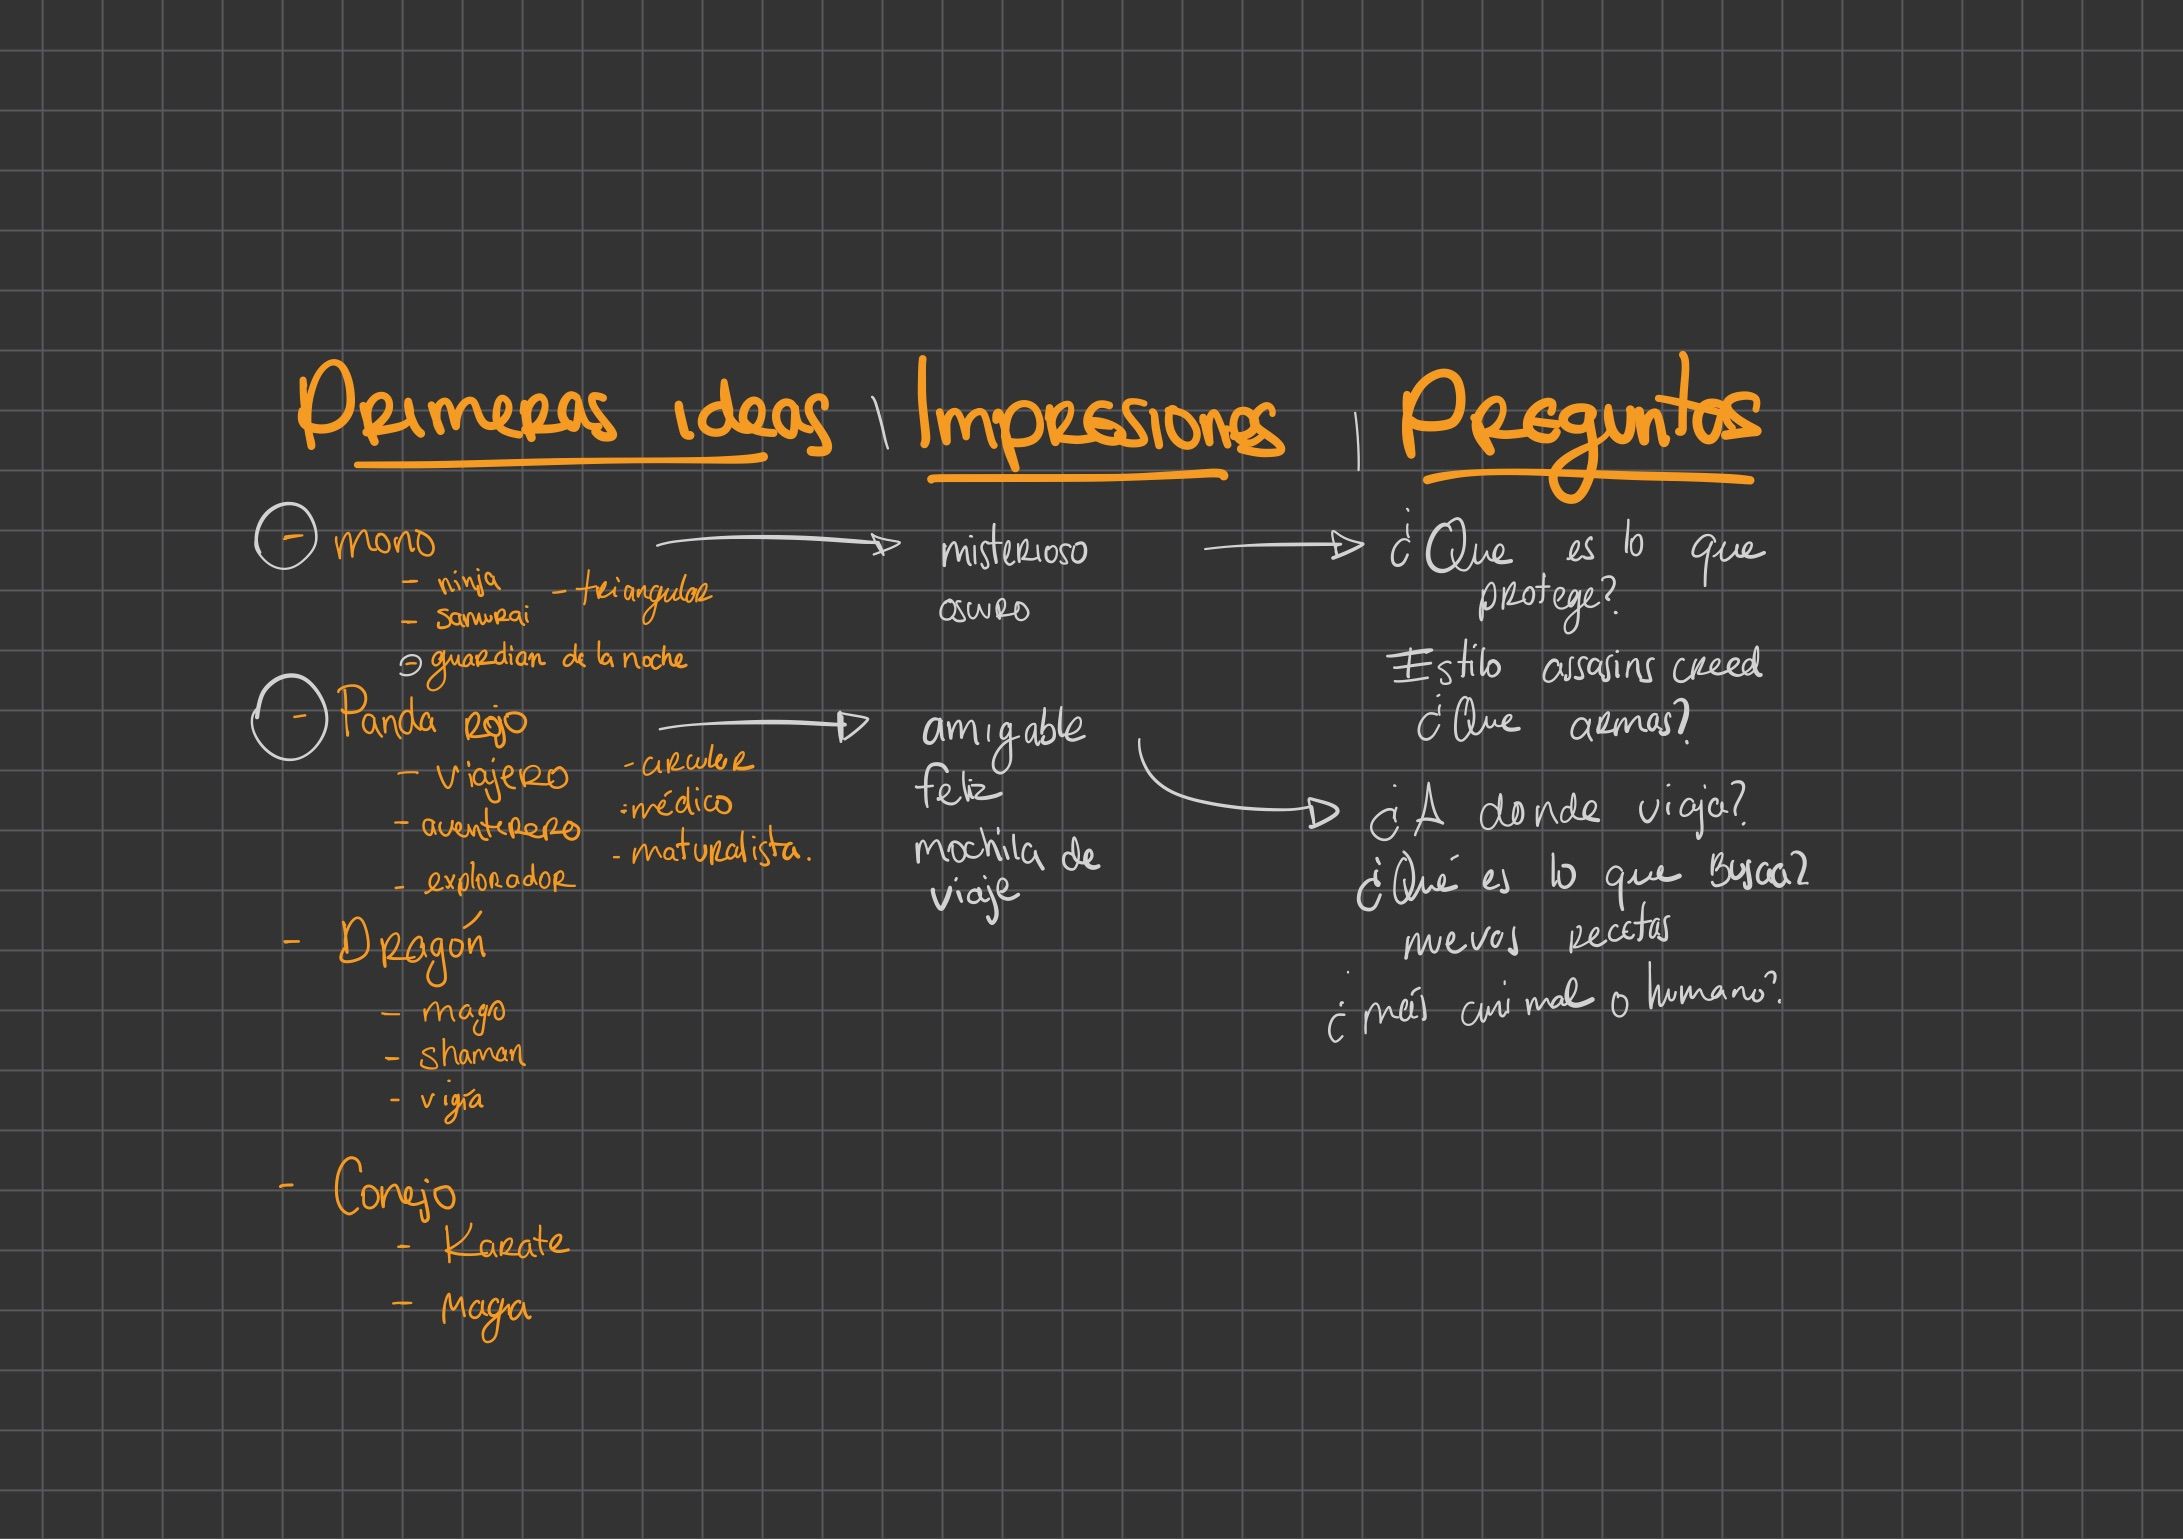 Primeras ideas | Impresiones | Preguntas
- mono
- ninja
- samurai
- triangular
- guardian de la noche
- Panda rojo
- viajero
- aventerero
- explorador
- circular
- médico
- naturalista.
- Dragón
- mago
- shaman
- vigía
- Conejo
- Karate
- Magia
misterioso
oscuro
amigable
feliz
mochila de
viaje
¿Que es lo que
protege?
Estilo assasins creed
¿Que armas?
¿A donde viaja?
¿Qué es lo que Busca?
nuevas recetas
¿más animal o humano?